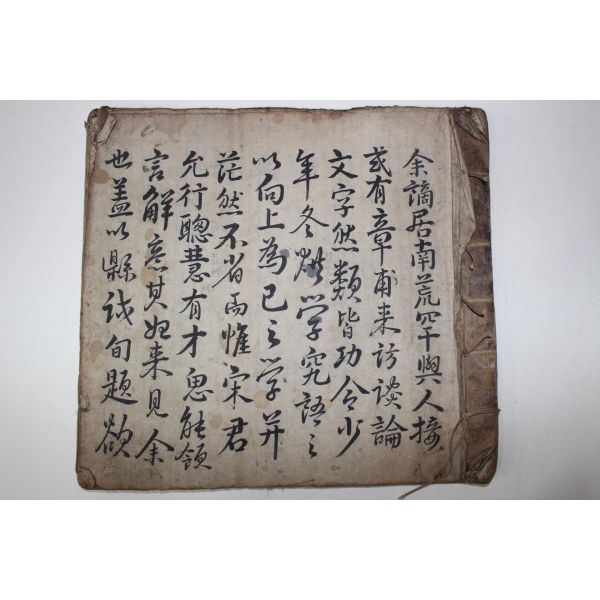 余謫居南荒罕與人接
或有章甫来訪談論
文字然類皆功令少
年冬烘學究語之
以向上為己之學并
茫然不省而惟宋君
允行聰慧有才思能領
言解意其始来見余
也盖以縣試旬題欲